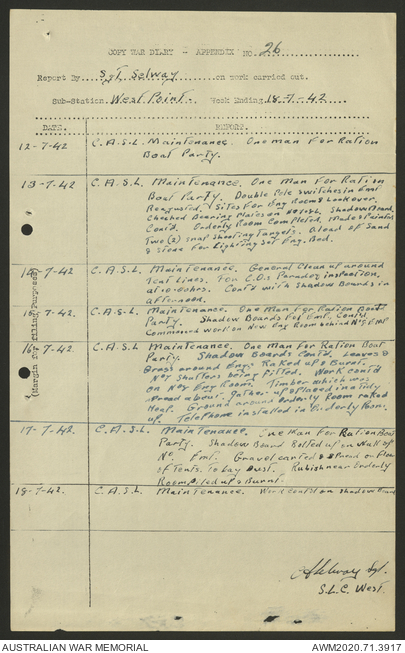 COPY WAR DIARY - APPENDIX NO. 26
Report By Sgt. Selway on work carried out.
Sub-Station West Point. Week Ending 18-7-42.
DATE. REPORT.
12-7-42 C.A.S.L. Maintenance. One man For Ration
Boat Party.
13-7-42 C.A.S.L. Maintenance. One Man For Ration
Boat Party. Double Pole switches in Emt
Sites For Eng Room & Lookover.
Checked Bearing Plates on Shadow Board
Cont'd. Orderly Room Completed. Made & Painted
Two (2) snap Shooting Targets. A load of Sand
& Stone For Lighting Set Eng. Bed.
14-7-42 C.A.S.L. Maintenance. General Clean up around
Tent Lines. For C.O's Parade & inspection,
at 10-00hrs. Cont'd with Shadow Boards in
afternoon.
15-7-42. C.A.S.L. Maintenance. One Man For Ration Boat
Party. Shadow Boards For Emt. Cont'd
Commenced work on New Eng Room behind No 5 Emt
16-7-42. C.A.S.L Maintenance. One Man For Ration Boat
Party. Shadow Boards Cont'd. Leaves &
Grass around Emps. Raked up & Burnt.
Shutters being Fitted. Work cont'd
on Eng Room. Timber which was
spread about. gather up & Placed in a tidy
Heap. Ground around Orderly Room raked
up. Telephone installed in Orderly Room.
17-7-42. C.A.S.L. Maintenance. One Man For Ration Boat
Party. Shadow Board Bolted up on Wall of
No. Emt. Gravel carted & spread on Floor
of Tents. To Lay Dust. Rubbish near Orderly
Room. Piled up & Burnt.
18-7-42. C.A.S.L Maintenance. Work cont'd on Shadow Board
(Margin for filing Purposes)
A Selway Sgt.
S.L.C. West.
AUSTRALIAN WAR MEMORIAL AWM2020.71.3917